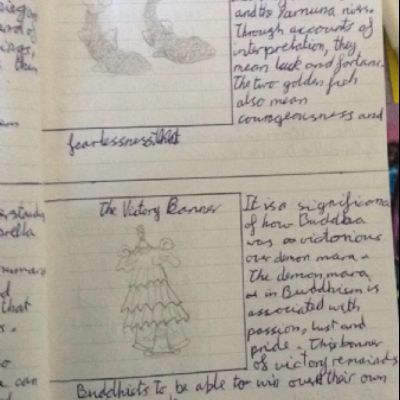 and the Yamuna river.
Through accounts of
interpretation, they
mean luck and fortune.
The two golden fish
also mean
courageousness and
fearlessness that
The Victory Banner
It is a significance
of how Buddha
was victorious
over demon mara.
The demon, mara,
in Buddhism is
associated with
passion, lust and
pride. This banner
of victory remainds
Buddhists to be able to win over their own
that
can